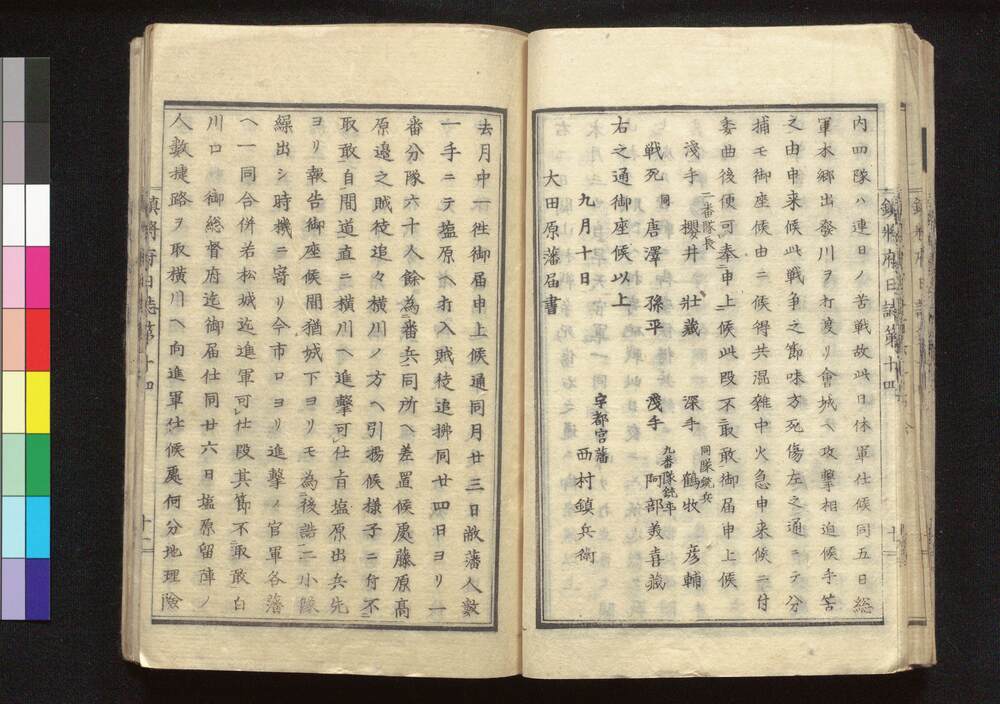 内四隊ハ連日ノ苦戦故此日休軍仕候同五日総
軍本郷出発川ヲ打渡リ會城ヘ攻撃相迫候手筈
之由申来候此戦争之節味方死傷左之通ニテ分
捕モ御座候由ニ候得共混雑中火急申来候ニ付
委曲後便可奉申上候此段不取敢御届申上候
二番隊長
浅手 櫻井 壮蔵
同隊銃兵
深手 鶴牧 彦輔
戦死 同 唐澤 孫平
九番隊銃卒
浅手 阿部義喜蔵
右之通御座候以上
九月十日
宇都宮藩
西村鎮兵衛
大田原藩届書
去月中一往御届申上候通同月廿三日敝藩人數
一手ニテ塩原ヘ打入賊徒追拂同廿四日ヨリ一
番分隊六十人餘為番兵同所ヘ差置候處藤原高
原邉之賊徒追々横川ノ方ヘ引揚候様子ニ付不
取敢自間道直ニ横川ヘ進撃可仕旨塩原出兵先
ヨリ報告御座候間猶城下ヨリモ為後詰二小隊
繰出シ時機ニ寄リ今市口ヨリ進撃ノ官軍各藩
ヘ一同合併若松城迄進軍可仕段其節不取敢白
川口 御総督府迄御届仕同廿六日塩原留陣ノ
人數捷路ヲ取横川ヘ向進軍仕候處何分地理險
鎮将府日誌第十四
十
鎮将府日誌第十四
十一